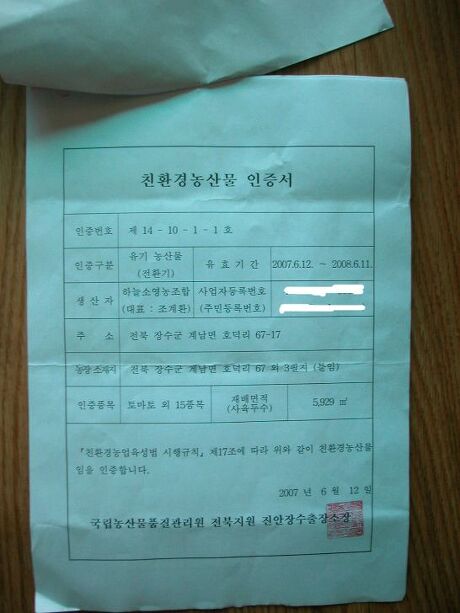 친환경농산물 인증서
인증번호 제 14 - 10 - 1 - 1 호
인증구분 유기 농산물 (전환기) 유 효 기 간 2007.6.12. ~ 2008.6.11.
생 산 자 하늘소영농조합 (대표 : 조계환) 사업자등록번호 (주민등록번호)
주 소 전북 장수군 계남면 호덕리 67-17
농장소재지 전북 장수군 계남면 호덕리 67 외 3필지 (붙임)
인증품목 토마토 외 15품목 재배면적 (사육두수) 5,929 ㎡
「친환경농업육성법 시행규칙」 제17조에 따라 위와 같이 친환경농산물
임을 인증합니다.
2007 년 6 월 12 일
국립농산물품질관리원 전북지원 진안장수출장소장